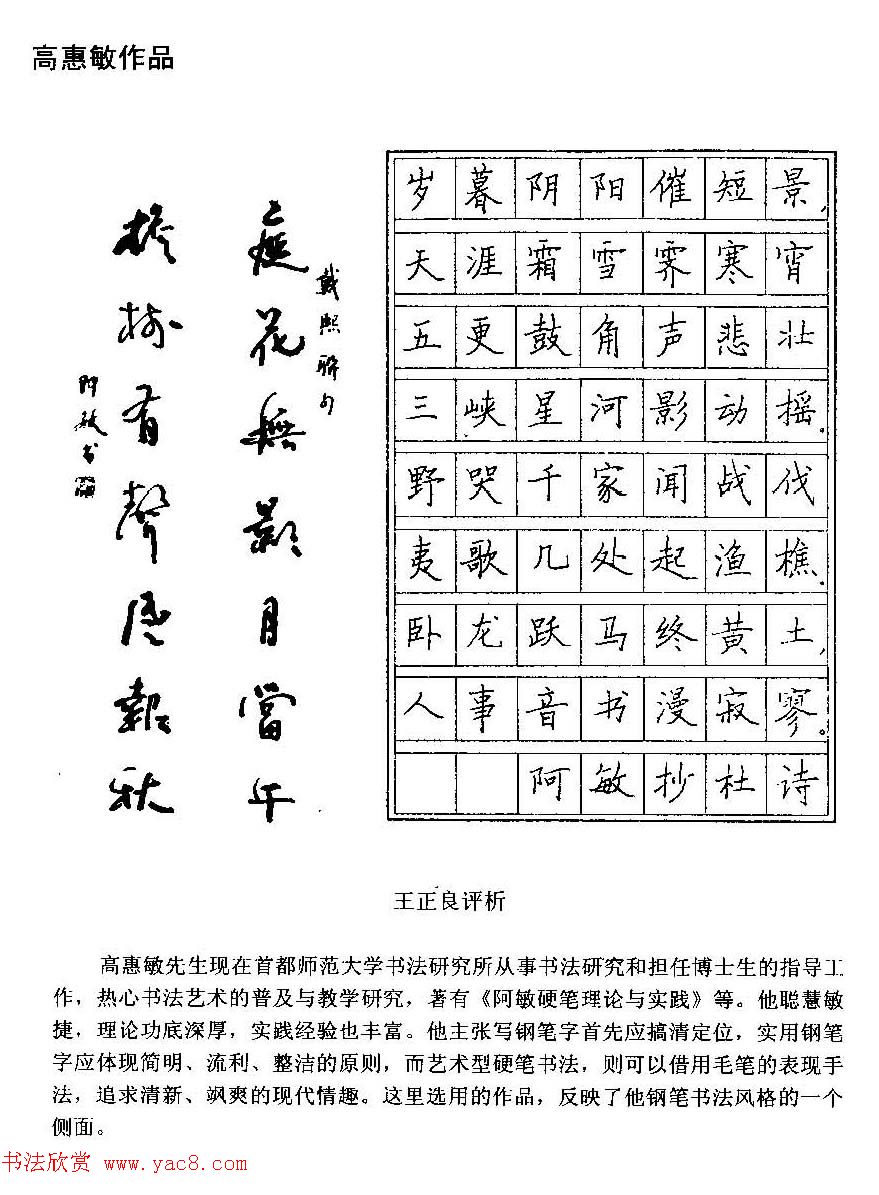 高惠敏作品
戴熙聯句
庭花無影月當午
檐樹有聲風報秋
阿敏书
岁暮阴阳催短景,
天涯霜雪霁寒宵
五更鼓角声悲壮
三峡星河影动摇。
野哭千家闻战伐
夷歌几处起渔樵。
卧龙跃马终黄土,
人事音书漫寂寥。
阿敏抄杜诗
王正良评析
高惠敏先生现在首都师范大学书法研究所从事书法研究和担任博士生的指导工
作，热心书法艺术的普及与教学研究，著有《阿敏硬笔理论与实践》等。他聪慧敏
捷，理论功底深厚，实践经验也丰富。他主张写钢笔字首先应搞清定位，实用钢笔
字应体现简明、流利、整洁的原则，而艺术型硬笔书法，则可以借用毛笔的表现手
法，追求清新、飒爽的现代情趣。这里选用的作品，反映了他钢笔书法风格的一个
侧面。
书法欣赏 www.yac8.com